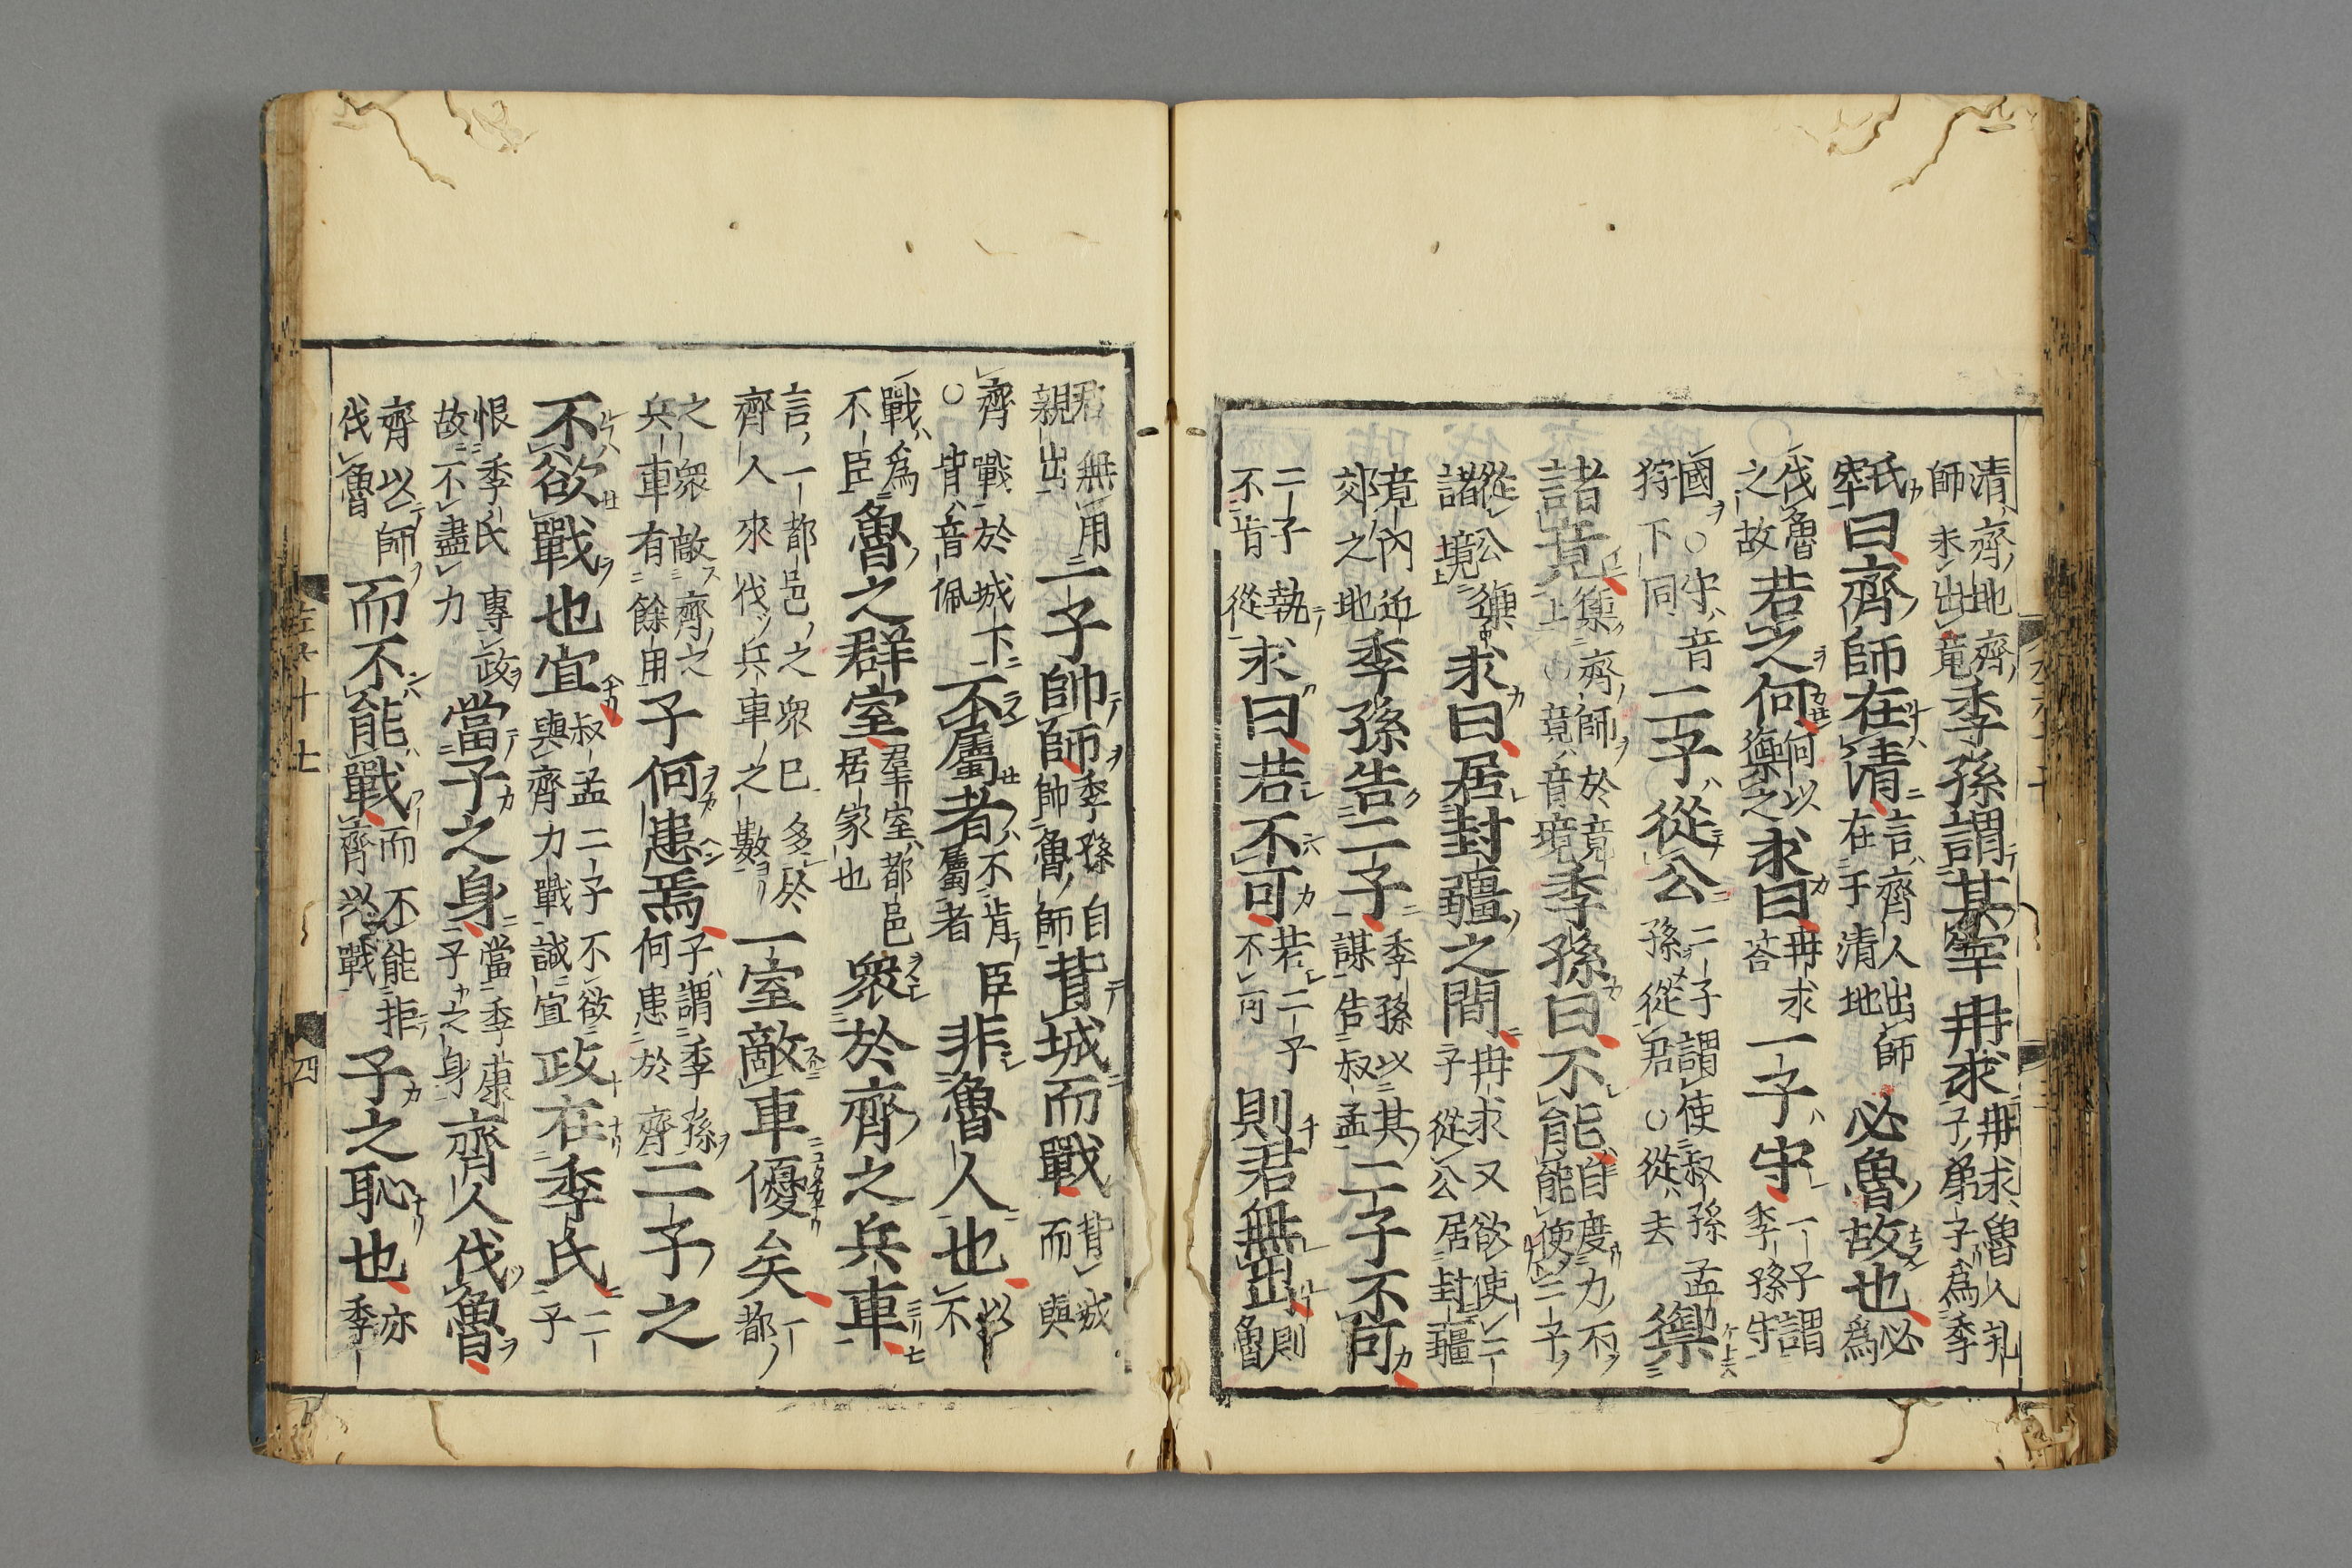 清齊地齊師未出竟季孫謂其宰冉求冉求魯人孔子弟子為季
氏宰曰齊師在清言齊人出師在于清地必魯故也必為
伐魯之故若之何何以禦之求曰冉求荅一子守一子謂季孫守
國○守音狩下同二子從公二子謂使叔孫孟孫從君○從去禦
諸竟禦齊師於竟上○竟音境季孫曰不能自度力不能使二子
從公禦諸境上求曰居封疆之間冉求又欲使二子從公居封疆
竟內近郊之地季孫告二子季孫以其謀告叔孟二子不可
二子執不肯從求曰若不可若二子不可則君無出則魯
君無用親出一子帥師季孫自帥魯師背城而戰背城而與
齊戰於城下○背音佩不屬者不肯屬者臣非魯人也以不
戰為不臣魯之群室羣室都邑居家也衆於齊之兵車
言一都邑之衆已多於齊人來伐兵車之數一室敵車優矣一都
之衆敵齊之兵車有餘用子何患焉子謂季孫何患於齊二子之
不欲戰也宜叔孟二子不欲與齊力戰誠宜政在季氏二子
恨季氏專政故不盡力當子之身當季康子之身齊人伐魯
齊以師伐魯而不能戰而不能拒齊以戰子之恥也亦季
左 十七
四